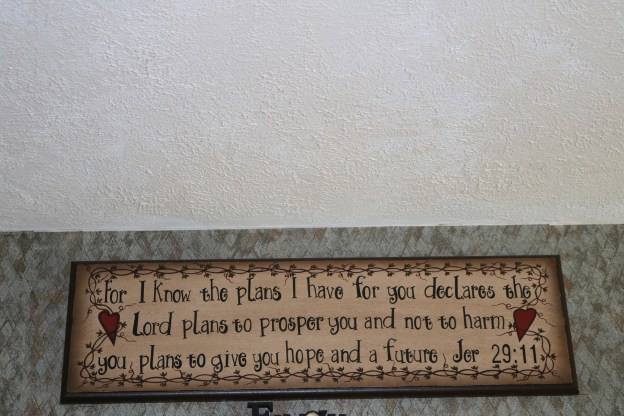 For I Know the plans I have for you declares the
Lord plans to prosper you and not to harm
you, plans to give you hope and a future, Jer 29:11